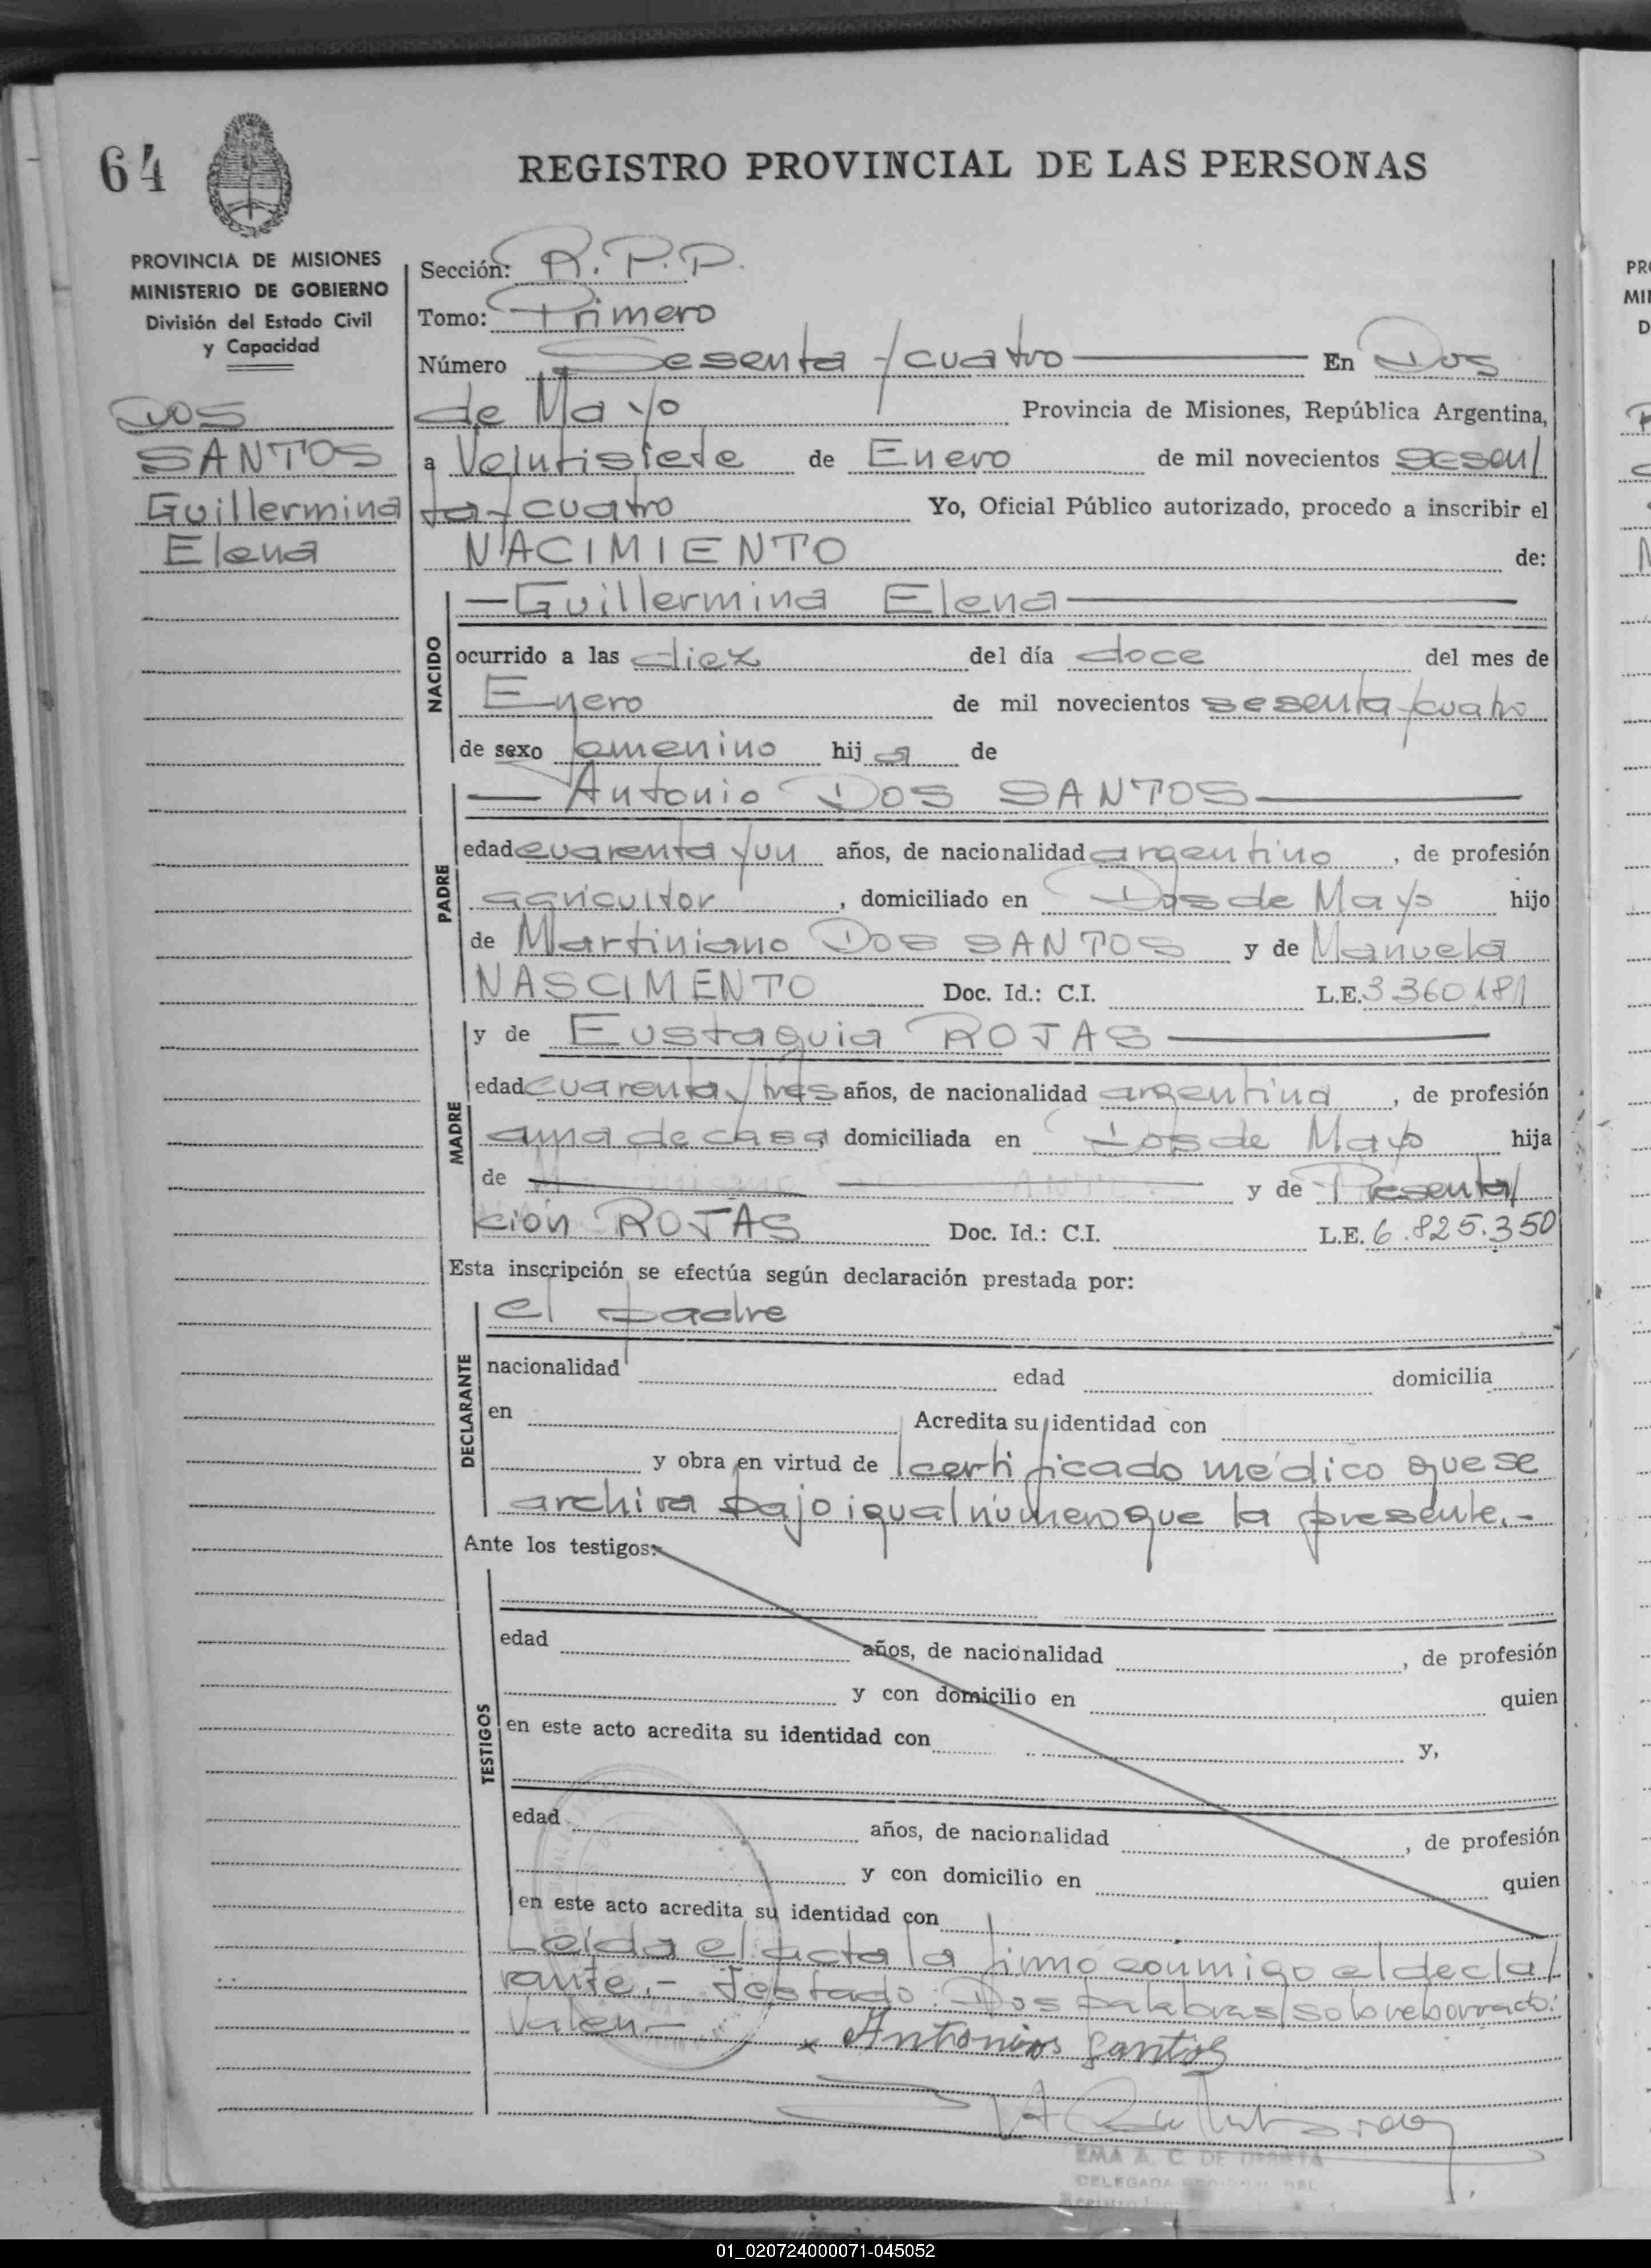 64
REGISTRO PROVINCIAL DE LAS PERSONAS
PROVINCIA DE MISIONES
MINISTERIO DE GOBIERNO
División del Estado Civil
y Capacidad
DOS
SANTOS
Guillermina
Elena
Sección: R.P.P.
Tomo: Primero
Número Sesenta y cuatro En Dos
de Mayo Provincia de Misiones, República Argentina,
a Veintisiete de Enero de mil novecientos sesen/
ta y cuatro Yo, Oficial Público autorizado, procedo a inscribir el
NACIMIENTO de:
NACIDO
—Guillermina Elena—
ocurrido a las diez del día doce del mes de
Enero de mil novecientos sesenta y cuatro
de sexo femenino hij a de
PADRE
— Antonio DOS SANTOS —
edad cuarenta y un años, de nacionalidad argentino, de profesión
agricultor, domiciliado en Dos de Mayo hijo
de Martiniano DOS SANTOS y de Manuela
NASCIMENTO Doc. Id.: C.I. L.E. 3360181
MADRE
y de Eustaquia ROJAS —
edad cuarenta y tres años, de nacionalidad argentina, de profesión
ama de casa, domiciliada en Dos de Mayo hija
de y de Presenta/
ción ROJAS Doc. Id.: C.I. L.E. 6.825.350
Esta inscripción se efectúa según declaración prestada por:
DECLARANTE
el padre
nacionalidad edad domicilia
en Acredita su identidad con
y obra en virtud de certificado médico que se
archiva bajo igual número que la presente.-
Ante los testigos:
TESTIGOS
edad años, de nacionalidad , de profesión
y con domicilio en quien
en este acto acredita su identidad con y,
edad años, de nacionalidad , de profesión
y con domicilio en quien
en este acto acredita su identidad con
Leída el acta la firmó conmigo el decla/
rante.- Testado: Dos palabras/sobreborrado:
Valen.-
x Antonios Santos
EMA A. C. DE
DELEGADA
01_020724000071-045052